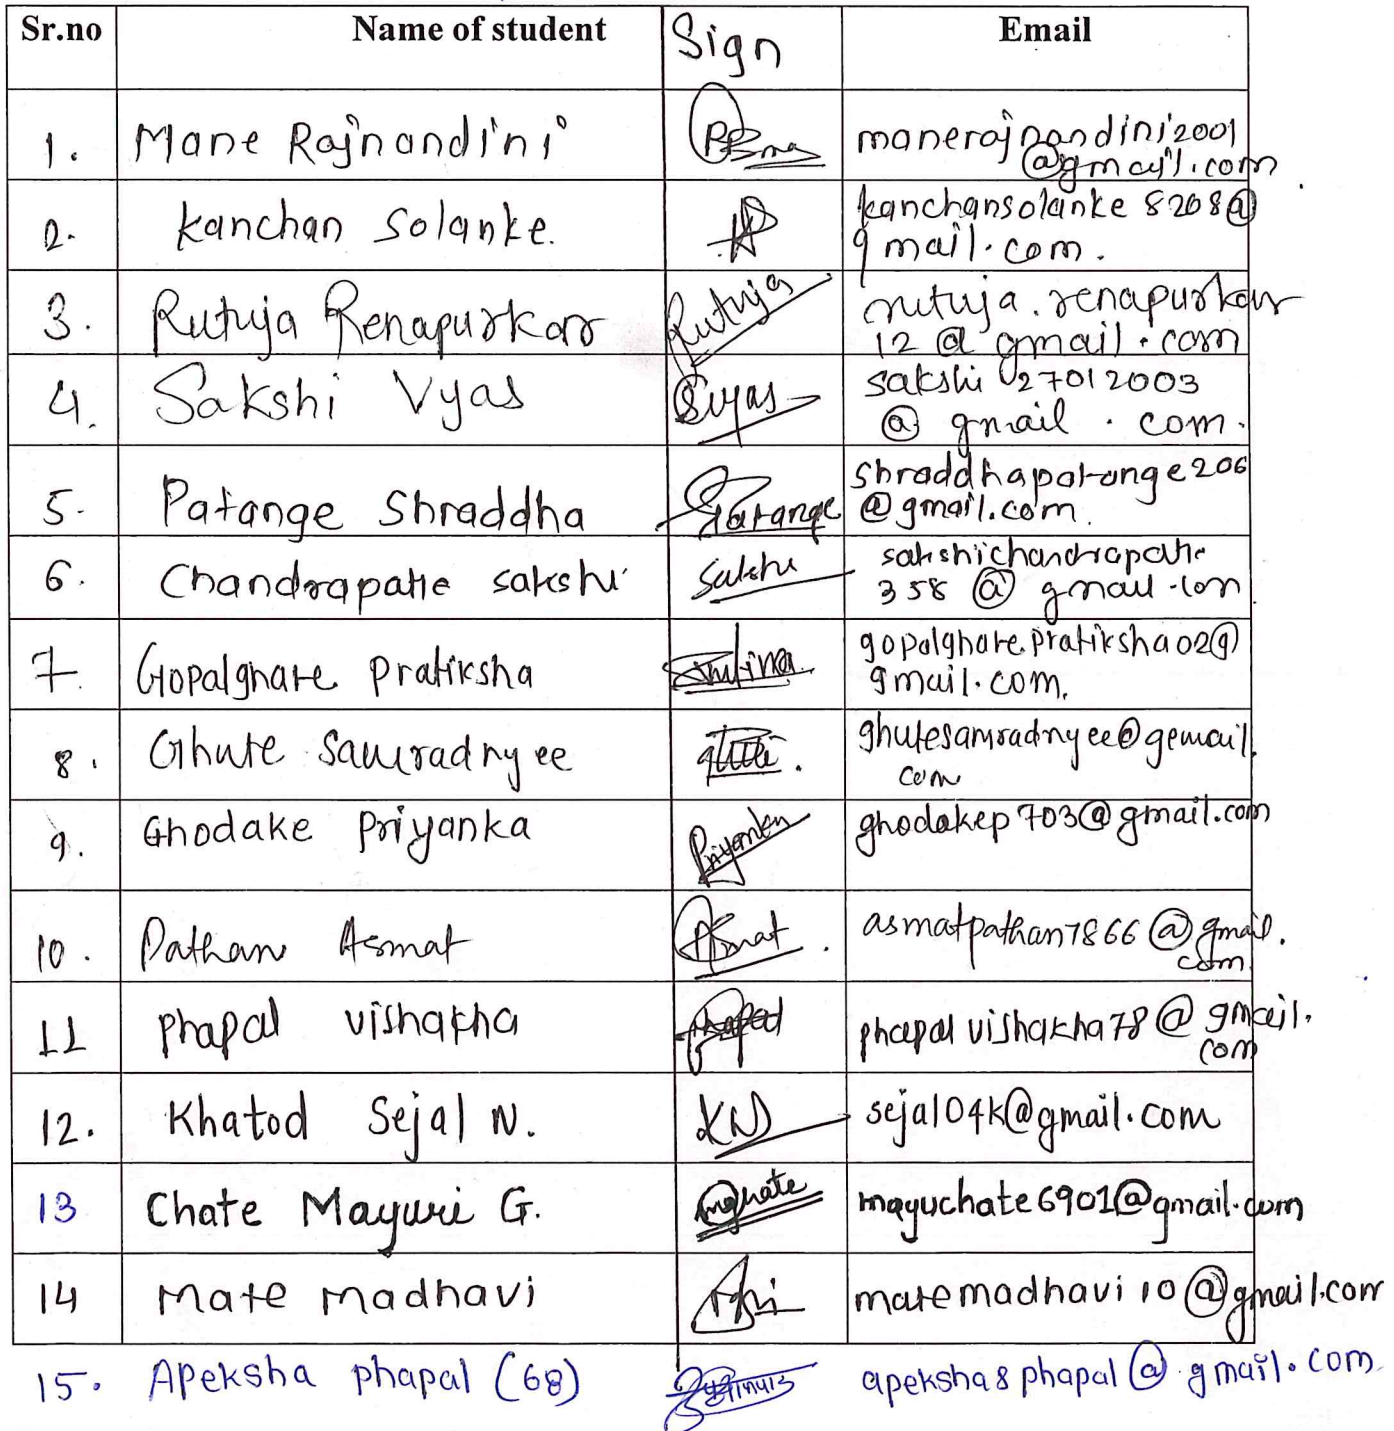 Sr.no Name of student Sign Email
1. Mane Rajnandini manerajnandini2001
@gmail.com
2. Kanchan Solanke. kanchansolanke 8208@
gmail.com.
3. Rutuja Renapurkar Rutuja rutuja.renapurkar
12 @ gmail.com
4. Sakshi Vyas Svyas sakshi 27012003
@ gmail . com.
5. Patange Shraddha Patange shraddhapatange206
@gmail.com.
6. Chandrapatle sakshi Sakshi sakshichandrapatle
358 @ gmail.com
7. Gopalghare Pratiksha gopalghare.pratiksha02@
gmail.com.
8. Ghute Samradnyee ghute. ghutesamradnyee@gemail.
com
9. Ghodake Priyanka Priyanka ghodakep703@gmail.com
10. Pathan Asmat Asmat. asmatpathan7866@gmail.
com.
11 phapal vishakha phapal phapalvishakha78@gmail.
com
12. Khatod Sejal N. KN sejal04k@gmail.com
13 Chate Mayuri G. mayuchate6901@gmail.com
14 Mate madhavi matemadhavi10@gmail.com
15. Apeksha phapal (68) apeksha8phapal@gmail.com